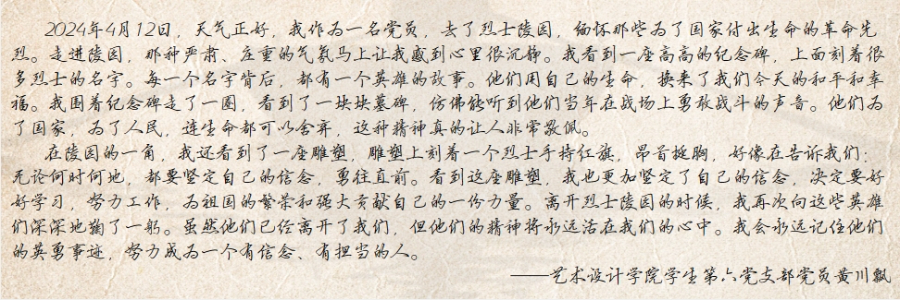 2024年4月12日，天气正好，我作为一名党员，去了烈士陵园，缅怀那些为了国家付出生命的革命先
烈。走进陵园，那种严肃、庄重的气氛马上让我感到心里很沉静。我看到一座高高的纪念碑，上面刻着很
多烈士的名字。每一个名字背后，都有一个英雄的故事。他们用自己的生命，换来了我们今天的和平和幸
福。我围着纪念碑走了一圈，看到了一块块墓碑，仿佛能听到他们当年在战场上勇敢战斗的声音。他们为
了国家，为了人民，连生命都可以舍弃，这种精神真的让人非常敬佩。
在陵园的一角，我还看到了一座雕塑，雕塑上刻着一个烈士手持红旗，昂首挺胸，好像在告诉我们：
无论何时何地，都要坚定自己的信念，勇往直前。看到这座雕塑，我也更加坚定了自己的信念，决定要好
好学习，努力工作，为祖国的繁荣和强大贡献自己的一份力量。离开烈士陵园的时候，我再次向这些英雄
们深深地鞠了一躬。虽然他们已经离开了我们，但他们的精神将永远活在我们的心中。我会永远记住他们
的英勇事迹，努力成为一个有信念、有担当的人。
——艺术设计学院学生第六党支部党员黄川飘